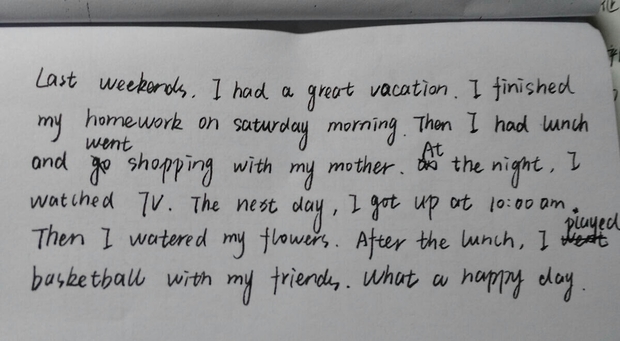 Last weekends. I had a great vacation. I finished
my homework on saturday morning. Then I had lunch
and went shopping with my mother. At the night, I
watched TV. The nest day, I got up at 10:00 am.
Then I watered my flowers. After the lunch, I played
basketball with my friends. What a happy day.